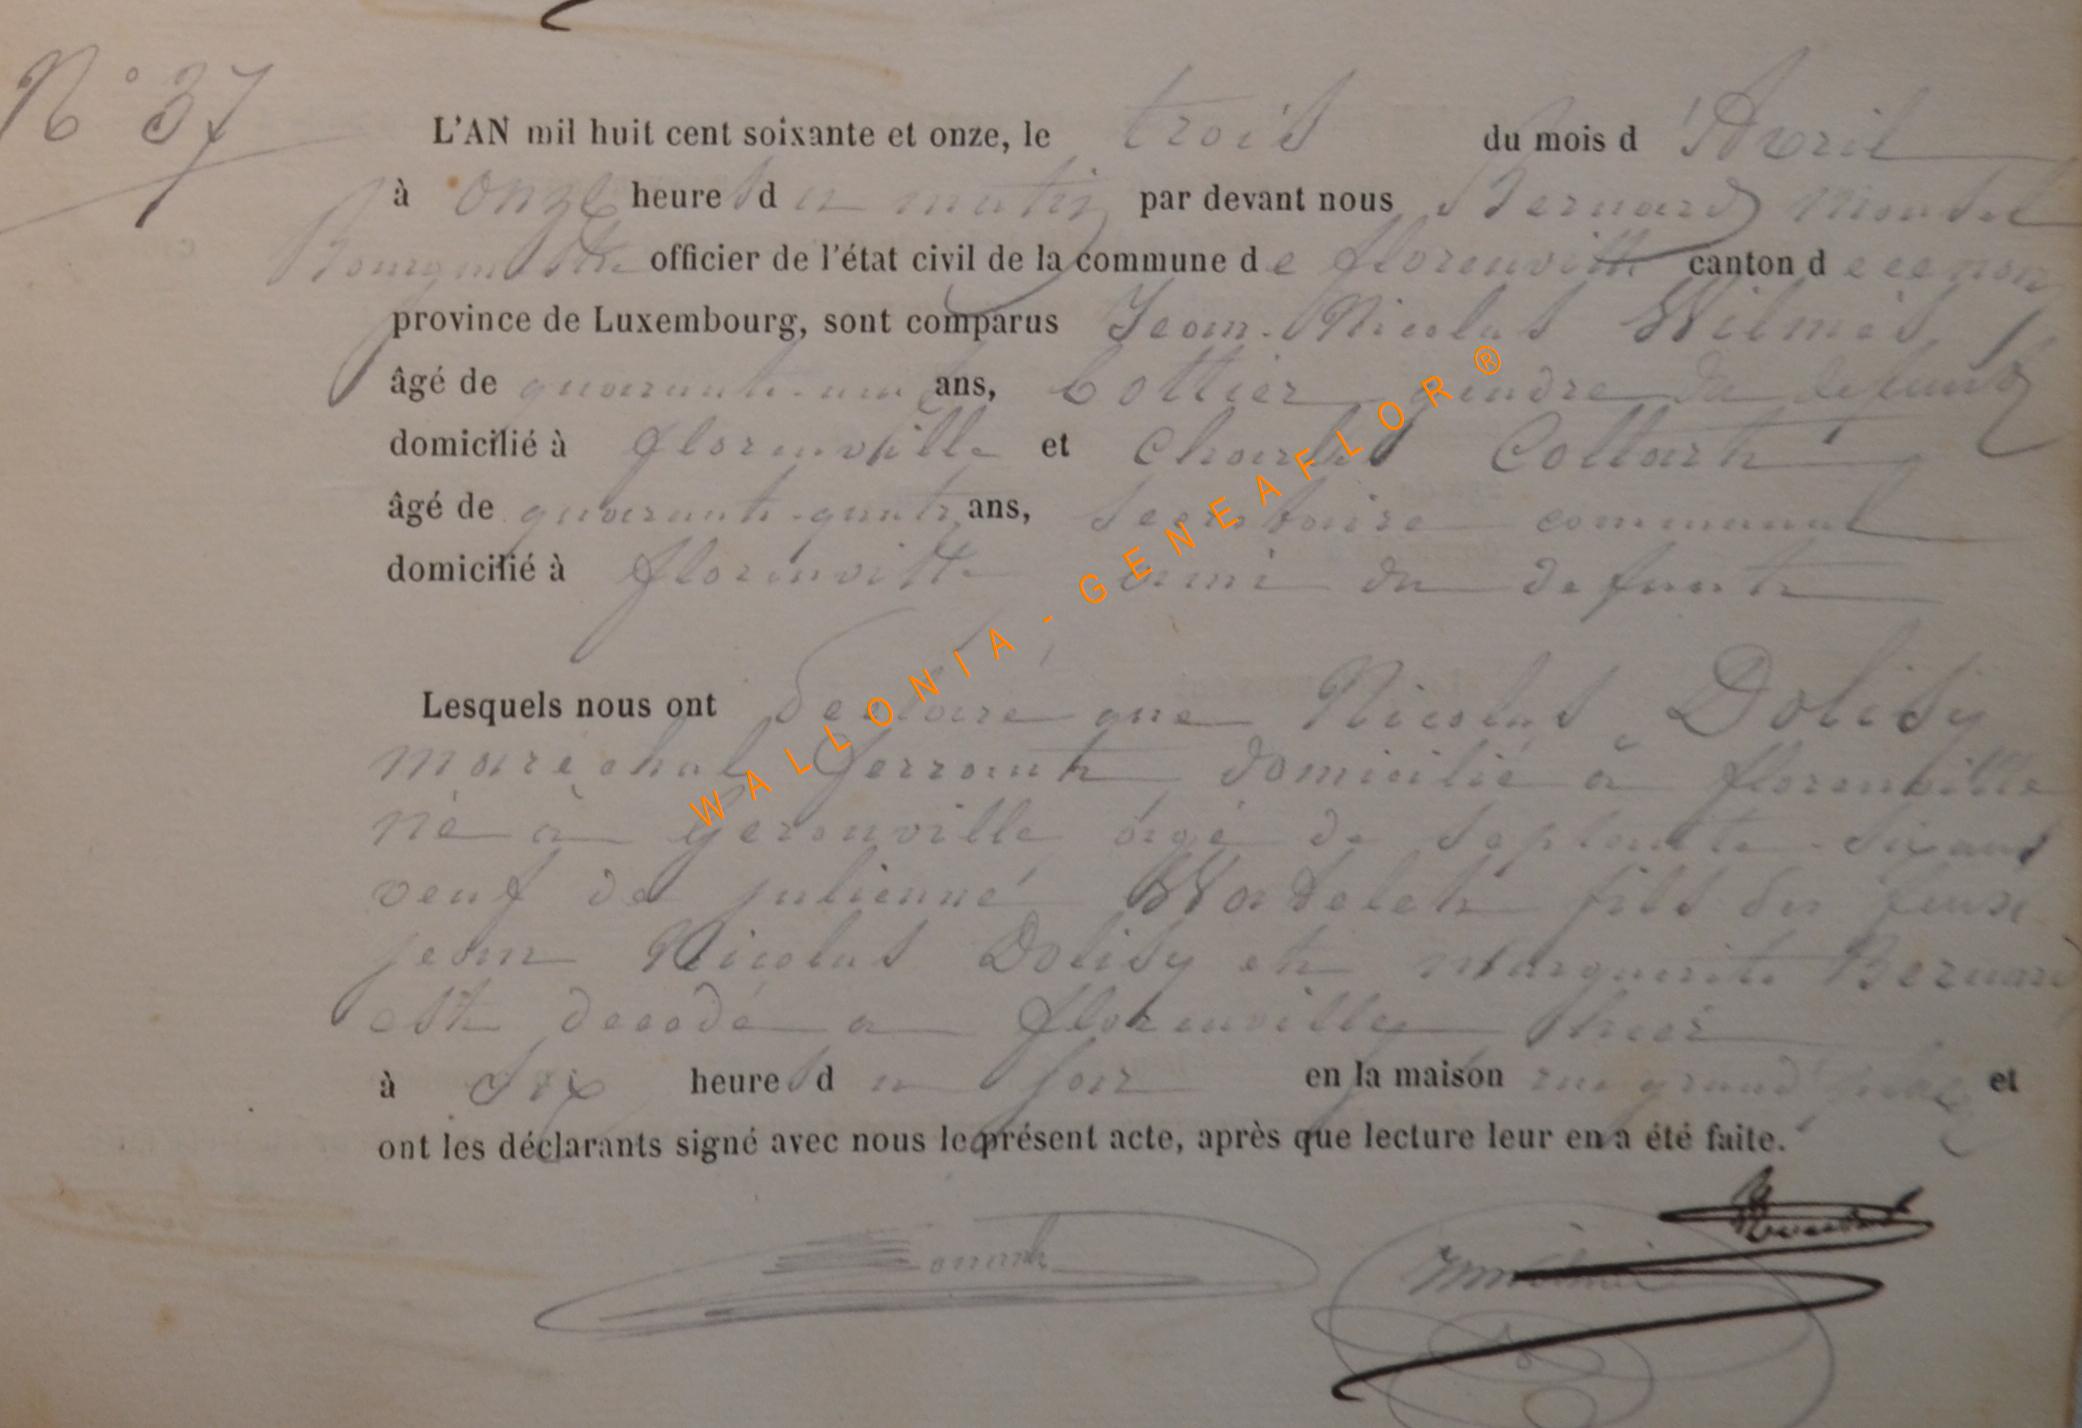 N° 37
L'AN mil huit cent soixante et onze, le trois du mois d'Avril
à onze heures du matin par devant nous Bernard
Bourgmestre officier de l'état civil de la commune de florenville canton d
province de Luxembourg, sont comparus Jean-Nicolas Wilmes,
âgé de quarante-un ans, Cottier gendre du defunt
domicilié à florenville et Charles Collart
âgé de quarante-quatre ans, secretaire communal
domicilié à florenville ami du defunt
Lesquels nous ont declaré que Nicolas Dolisy
maréchal ferrant domicilié à florenville
né à Gerouville âgé de septante-six ans
veuf de julienne Watelet fils des feux
jean Nicolas Dolisy et Marguerite Bernard
est decedé a florenville hier
à six heures du soir en la maison rue grand'place et
ont les déclarants signé avec nous le présent acte, après que lecture leur en a été faite.
WALLONIA - GENEAFLOR ®